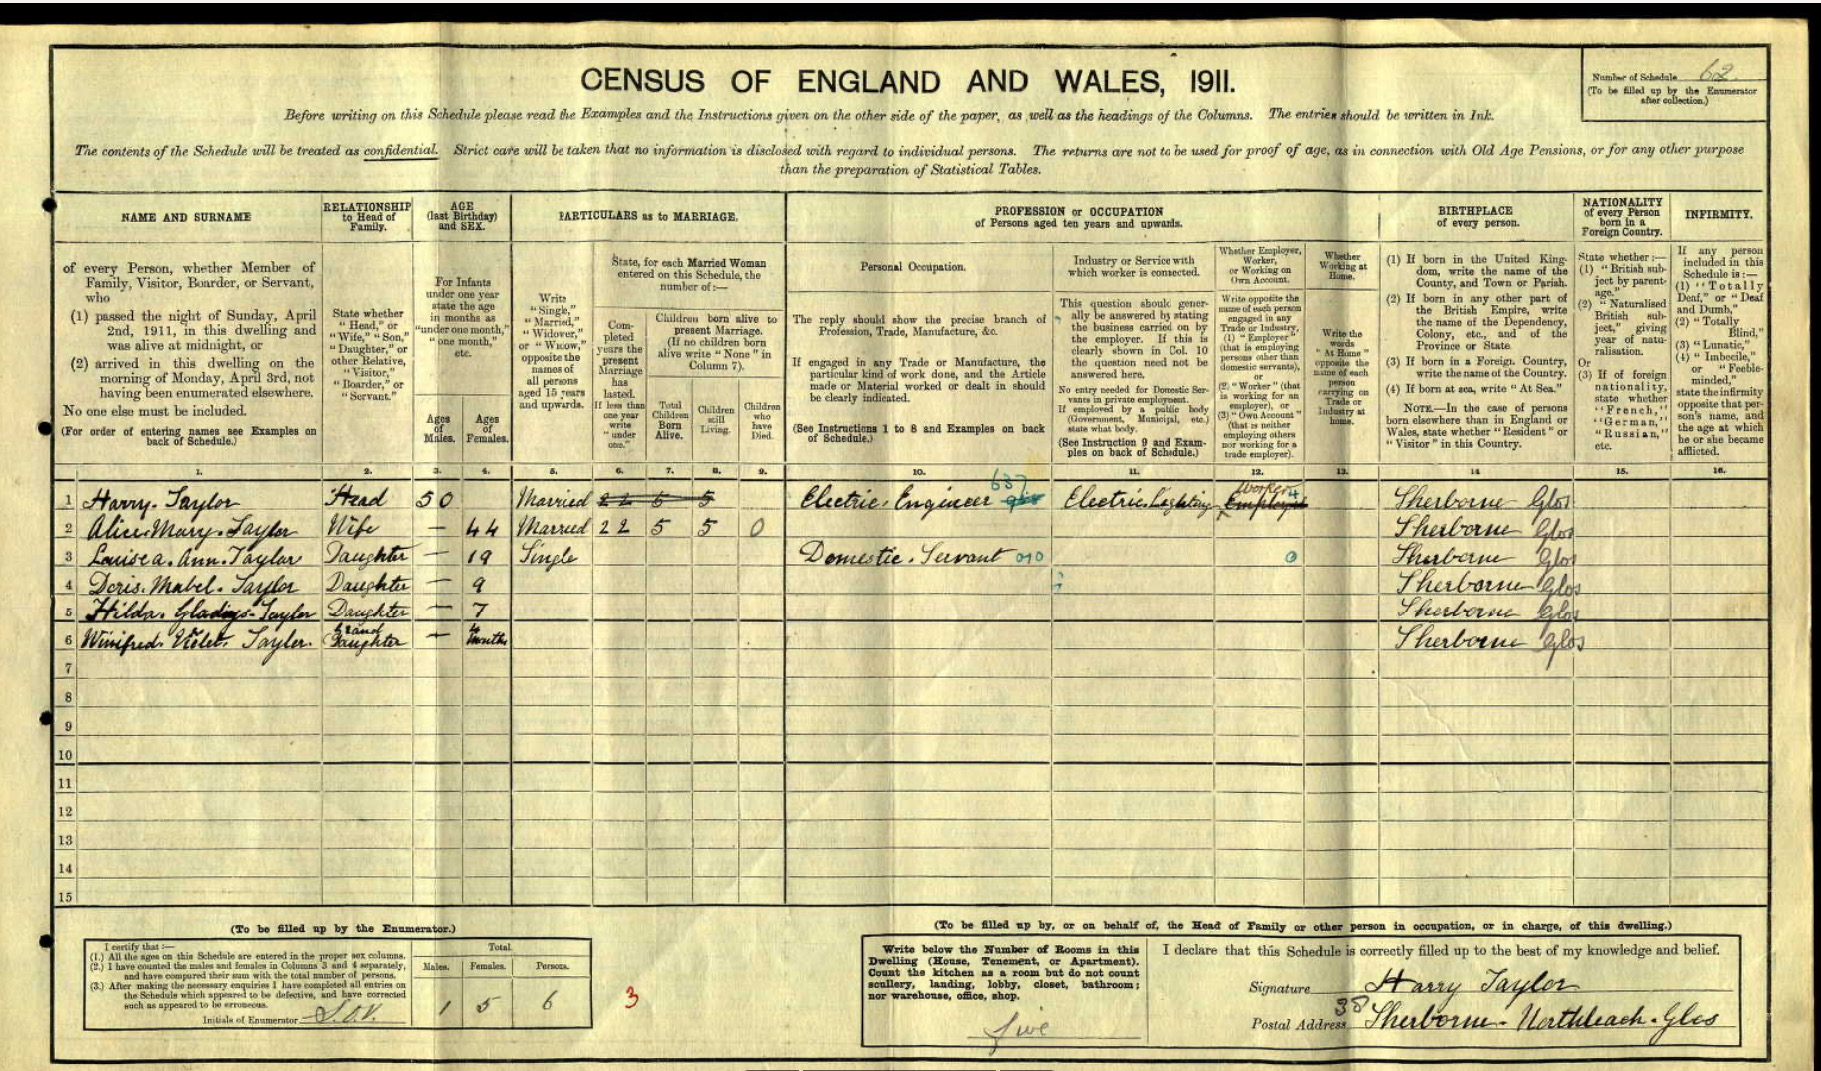 CENSUS OF ENGLAND AND WALES, 1911.
Number of Schedule 62
(To be filled up by the Enumerator
after collection.)
Before writing on this Schedule please read the Examples and the Instructions given on the other side of the paper, as well as the headings of the Columns. The entries should be written in Ink.
The contents of the Schedule will be treated as confidential. Strict care will be taken that no information is disclosed with regard to individual persons. The returns are not to be used for proof of age, as in connection with Old Age Pensions, or for any other purpose
than the preparation of Statistical Tables.
NAME AND SURNAME
of every Person, whether Member of
Family, Visitor, Boarder, or Servant,
who
(1) passed the night of Sunday, April
2nd, 1911, in this dwelling and
was alive at midnight, or
(2) arrived in this dwelling on the
morning of Monday, April 3rd, not
having been enumerated elsewhere.
No one else must be included.
(For order of entering names see Examples on
back of Schedule.)
RELATIONSHIP
to Head of
Family.
State whether
"Head," or
"Wife," "Son,"
"Daughter," or
other Relative,
"Visitor,"
"Boarder," or
"Servant."
AGE
(last Birthday)
and SEX.
For Infants
under one year
state the age
in months as
"under one month,"
"one month,"
etc.
Ages
of
Males.
Ages
of
Females.
PARTICULARS as to MARRIAGE.
Write
"Single,"
"Married,"
"Widower,"
or "Widow,"
opposite the
names of
all persons
aged 15 years
and upwards.
State, for each Married Woman
entered on this Schedule, the
number of:—
Com-
pleted
years the
present
Marriage
has
lasted.
If less than
one year
write
"under
one."
Children born alive to
present Marriage.
(If no children born
alive write "None" in
Column 7).
Total
Children
Born
Alive.
Children
still
Living.
Children
who
have
Died.
PROFESSION or OCCUPATION
of Persons aged ten years and upwards.
Personal Occupation.
The reply should show the precise branch of
Profession, Trade, Manufacture, &c.
If engaged in any Trade or Manufacture, the
particular kind of work done, and the Article
made or Material worked or dealt in should
be clearly indicated.
(See Instructions 1 to 8 and Examples on back
of Schedule.)
Industry or Service with
which worker is connected.
This question should gener-
ally be answered by stating
the business carried on by
the employer. If this is
clearly shown in Col. 10
the question need not be
answered here.
No entry needed for Domestic Ser-
vants in private employment.
If employed by a public body
(Government, Municipal, etc.)
state what body.
(See Instruction 9 and Exam-
ples on back of Schedule.)
Whether Employer,
Worker,
or Working on
Own Account.
Write opposite the
name of each person
engaged in any
Trade or Industry,
(1) "Employer"
(that is employing
persons other than
domestic servants),
or
(2) "Worker" (that
is working for an
employer), or
(3) "Own Account"
(that is neither
employing others
nor working for a
trade employer).
Whether
Working at
Home.
Write the
words
"At Home"
opposite the
name of each
person
carrying on
Trade or
Industry at
home.
BIRTHPLACE
of every person.
(1) If born in the United King-
dom, write the name of the
County, and Town or Parish.
(2) If born in any other part of
the British Empire, write
the name of the Dependency,
Colony, etc., and of the
Province or State.
(3) If born in a Foreign Country,
write the name of the Country.
(4) If born at sea, write "At Sea."
NOTE.—In the case of persons
born elsewhere than in England or
Wales, state whether "Resident" or
"Visitor" in this Country.
NATIONALITY
of every Person
born in a
Foreign Country.
State whether:—
(1) "British sub-
ject by parent-
age."
(2) "Naturalised
British sub-
ject," giving
year of natu-
ralisation.
Or
(3) If of foreign
nationality,
state whether
"French,"
"German,"
"Russian,"
etc.
INFIRMITY.
If any person
included in this
Schedule is:—
(1) "Totally
Deaf," or "Deaf
and Dumb,"
(2) "Totally
Blind,"
(3) "Lunatic,"
(4) "Imbecile,"
or "Feeble-
minded,"
state the infirmity
opposite that per-
son's name, and
the age at which
he or she became
afflicted.
1. 2. 3. 4. 5. 6. 7. 8. 9. 10. 11. 12. 13. 14 15. 16.
637
Worker 4
1 Harry. Taylor Head 50 Married 22 5 5 Electric. Engineer Electric. Lighting Employer Sherborne Glos
2 Alice. Mary. Taylor Wife — 44 Married 22 5 5 0 Sherborne Glos
3 Louisea. Ann. Taylor Daughter — 19 Single Domestic. Servant 010 0 Sherborne Glos
4 Doris. Mabel. Taylor Daughter — 9 Sherborne Glos
5 Hilda. Gladys. Taylor Daughter — 7 Sherborne Glos
6 Winifred. Violet. Taylor. Grand Daughter — 4 months Sherborne Glos
7
8
9
10
11
12
13
14
15
(To be filled up by the Enumerator.)
I certify that:—
(1.) All the ages on this Schedule are entered in the proper sex columns.
(2.) I have counted the males and females in Columns 3 and 4 separately,
and have compared their sum with the total number of persons.
(3.) After making the necessary enquiries I have completed all entries on
the Schedule which appeared to be defective, and have corrected
such as appeared to be erroneous.
Initials of Enumerator
Total.
Males. Females. Persons.
1 5 6
3
(To be filled up by, or on behalf of, the Head of Family or other person in occupation, or in charge, of this dwelling.)
Write below the Number of Rooms in this
Dwelling (House, Tenement, or Apartment).
Count the kitchen as a room but do not count
scullery, landing, lobby, closet, bathroom;
nor warehouse, office, shop.
five
I declare that this Schedule is correctly filled up to the best of my knowledge and belief.
Signature Harry Taylor
Postal Address 38 Sherborne. Northleach. Glos